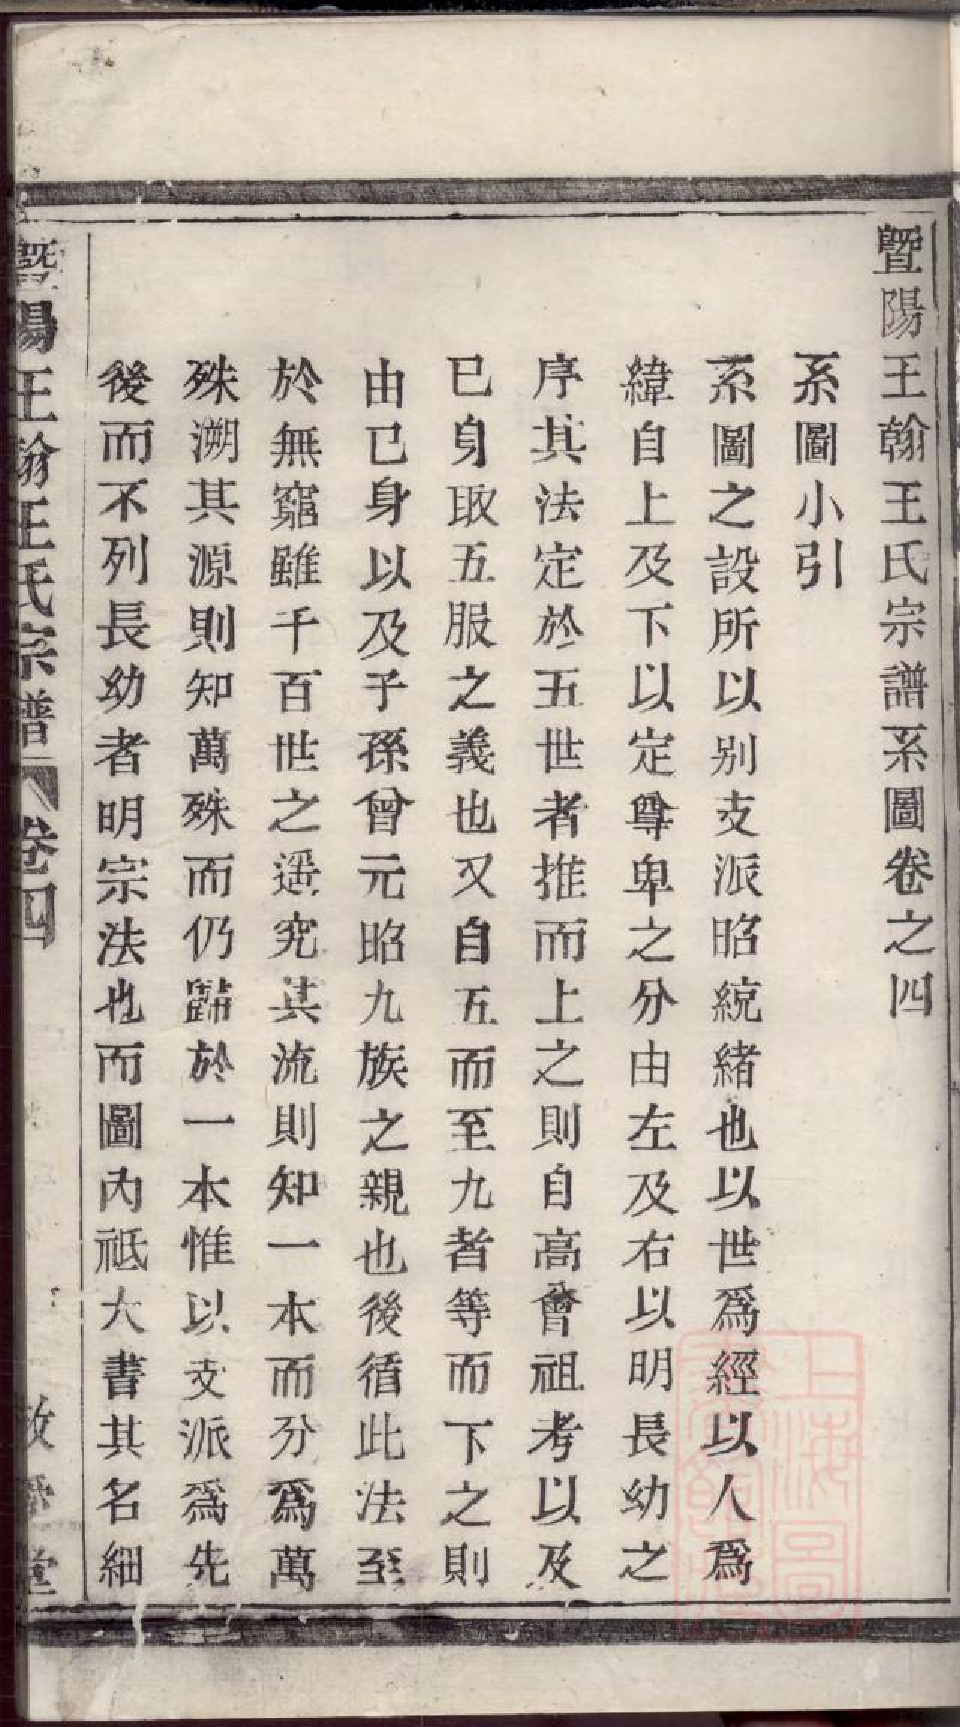 暨陽王翰王氏宗譜系圖卷之四
系圖小引
系圖之設所以别支派昭統緒也以世爲經以人爲
緯自上及下以定尊卑之分由左及右以明長幼之
序其法定於五世者推而上之則自高曾祖考以及
已身取五服之義也又自五而至九者等而下之則
由已身以及子孫曾元昭九族之親也後循此法至
於無窮雖千百世之遥究其流則知一本而分爲萬
殊溯其源則知萬殊而仍歸於一本惟以支派爲先
後而不列長幼者明宗法也而圖内祗大書其名細
暨陽王翰王氏宗譜 卷四 敦堂
上海圖